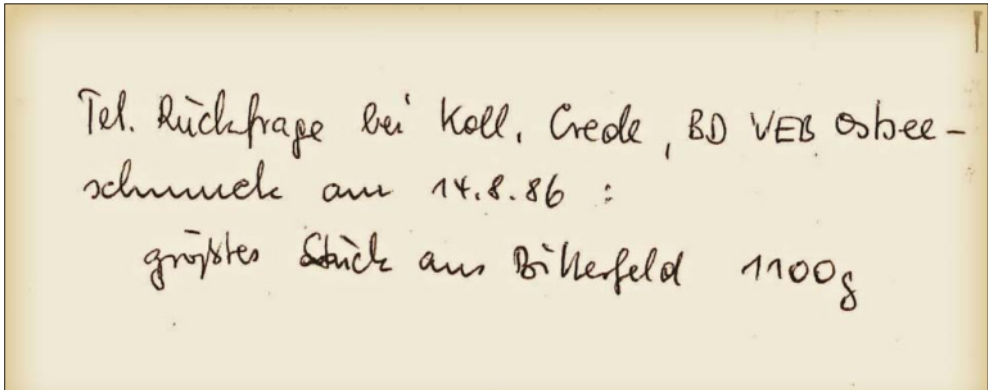 Tel. Rückfrage bei Koll. Crede, BD VEB Ostsee-
schmuck am 14.8.86 :
größtes Stück aus Bitterfeld 1100g